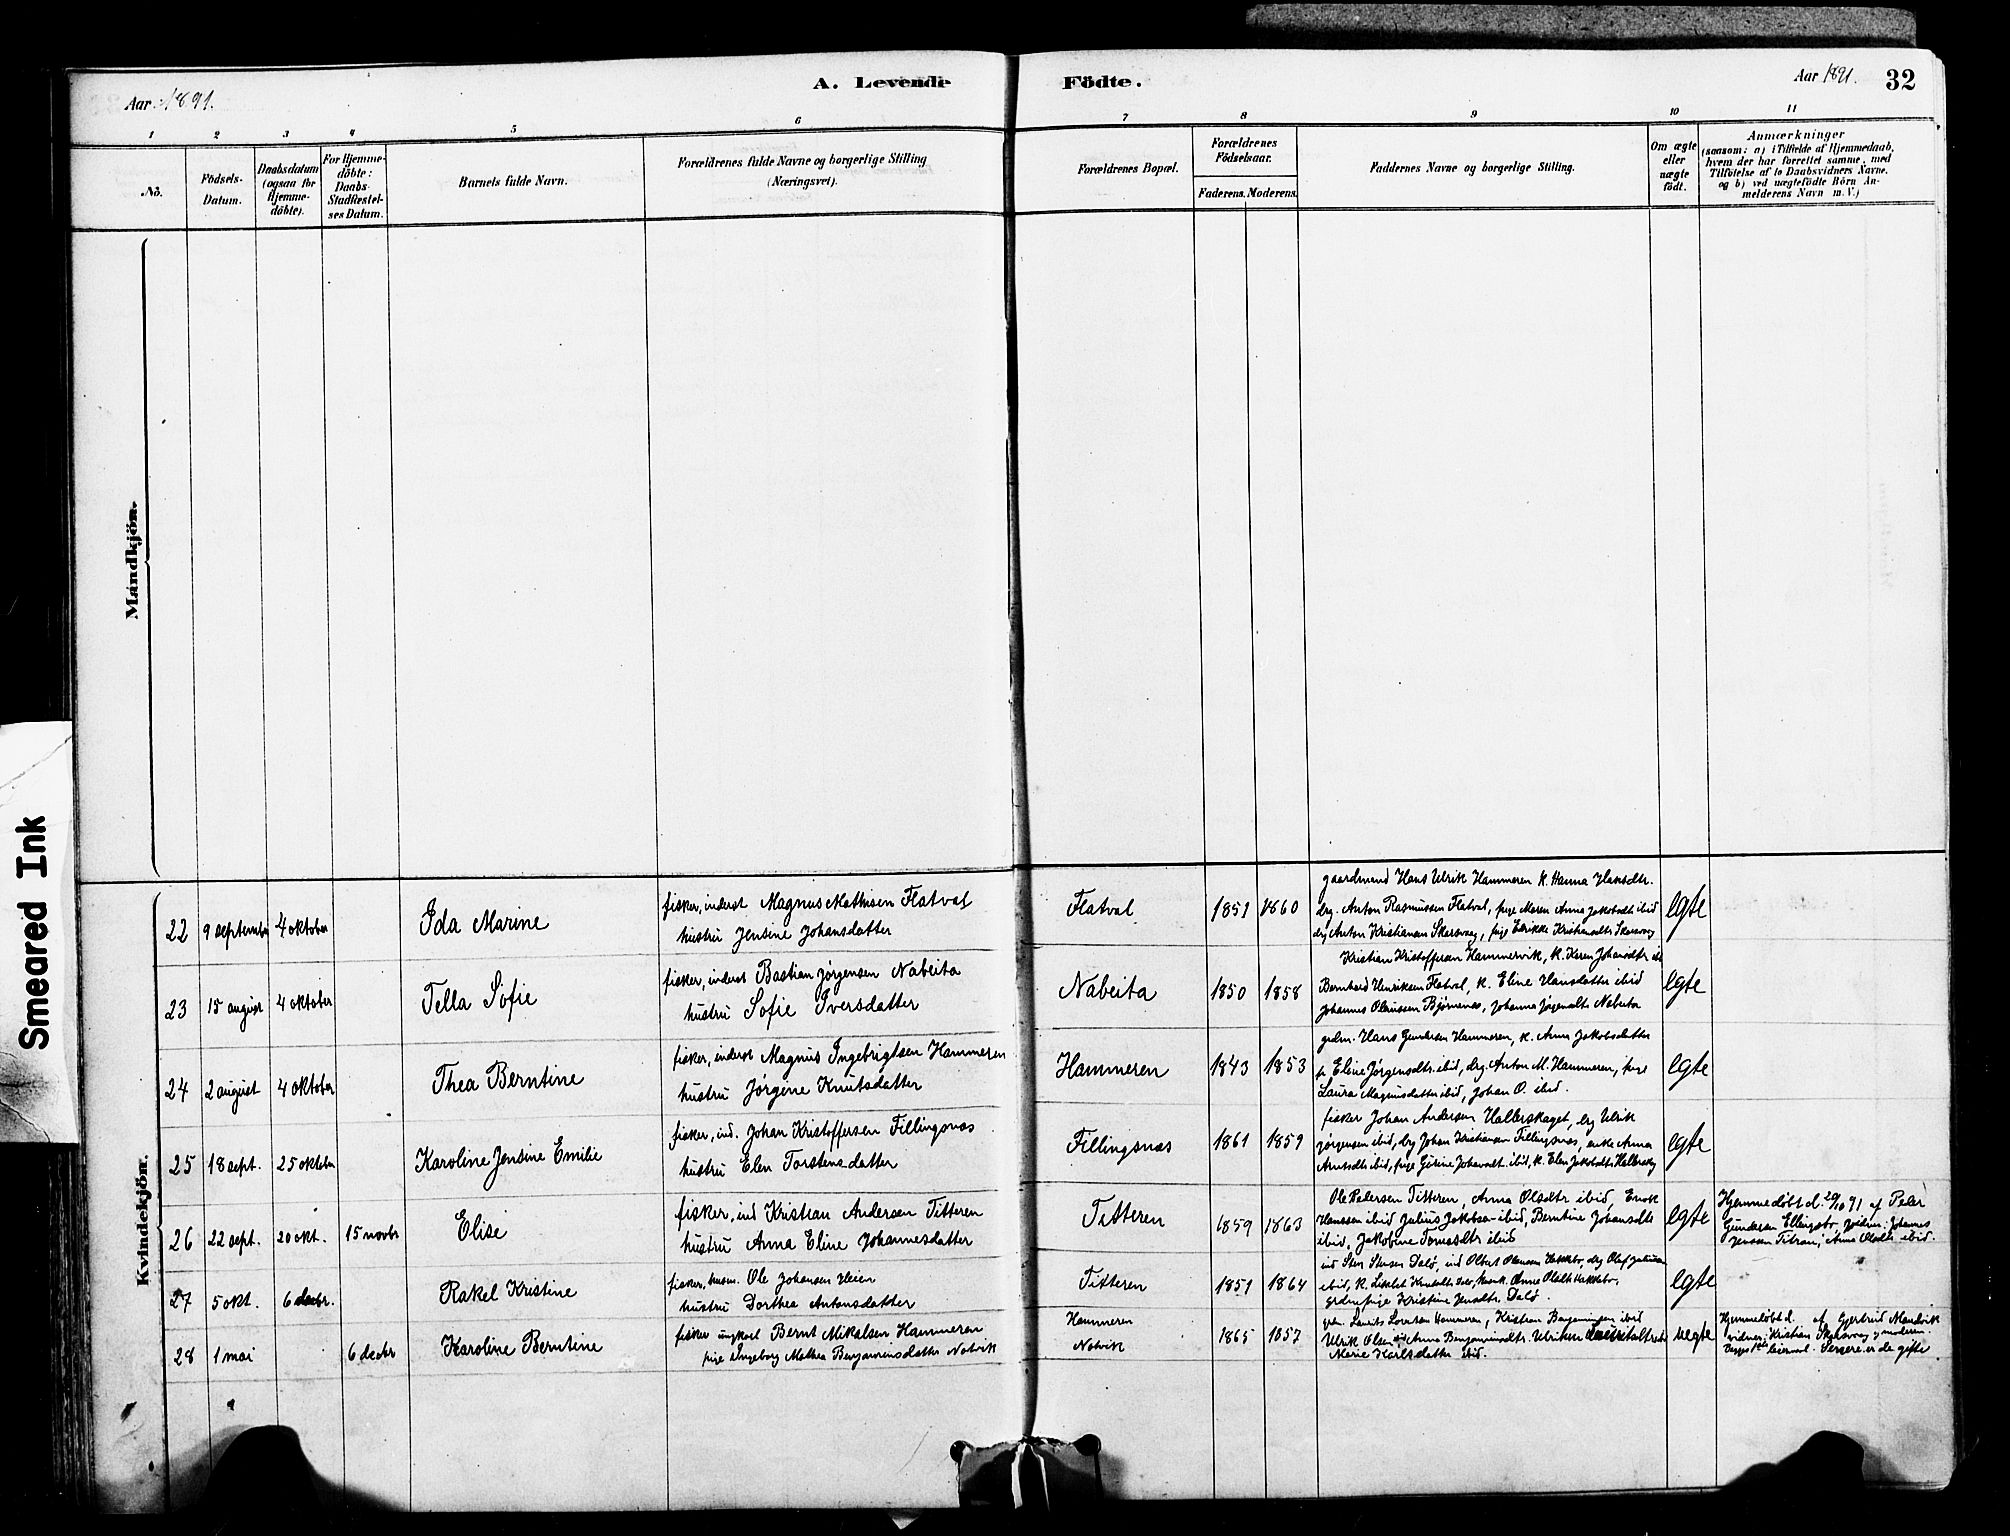 A. Levende Födte.
Aar 1891.
Aar 1891.
32
1 2 3 4 5 6 7 8 9 10 11
No.
Födsels-Datum.
Daabsdatum (ogsaa for Hjemme-döbte).
For Hjemme-döbte: Daabs-Stadfæstel-ses Datum.
Barnets fulde Navn.
Forældrenes fulde Navne og borgerlige Stilling (Næringsvei).
Forældrenes Bopæl.
Forældrenes Födselsaar.
Faderens. Moderens.
Faddernes Navne og borgerlige Stilling.
Om ægte eller uægte födt.
Anmærkninger
(saasom: a) i Tilfælde af Hjemmedaab, hvem der har forrettet samme, med Tilföielse af to Daabsvidners Navne, og b) ved uægtefödte Börn An-melderens Navn m.V.)
Mandkjön.
Kvindekjön.
Smeared Ink
22 9 september 4 oktober Ida Marine
fisker, inderst Magnus Mathisen Flatval
hustru Jensine Johansdatter
Flatval 1851 1860
gaardmand Hans Ulrik Hammeren k. Hanna Hansdtr.
drg. Anton Rasmussen Flatval, pige Maren Anna Jakobsdtr ibid
drg Anton Kristiansen Skarsvaag, pige Kristiansdtr Skarsvaag
ægte
23 15 august 4 oktober Tella Sofie
fisker, inderst Bastian Jørgensen Nabeita
hustru Sofie Iversdatter
Nabeita 1850 1858
Kristian Kristoffersen Hammervik, k. Karen Johansdtr ib
Bernhard Henriksen Flatval, k. Eline Hansdatter ibid
Johannes Olaussen Bjørnenes, Johanna Jørgensdtr Nabeita
ægte
24 2 august 4 oktober Thea Berntine
fisker, inderst Magnus Ingebrigtsen Hammeren
hustru Jørgine Knutsdatter
Hammeren 1843 1853
gdm. Hans Gundersen Hammeren, k. Anna Jakobsdatter
p. Eline Jørgensdtr. ibid, drg. Anton M. Hammeren, pige
Laura Magnusdatter ibid, Johan O. ibid.
ægte
25 18 sept. 25 oktober Karoline Jensine Emilie
fisker, ind. Johan Kristoffersen Fillingsnæs
hustru Elen Torstensdatter
Fillingsnæs 1861 1859
fisker Johan Andersen Hallerskaget, drg Ulrik
Jørgensen ibid, drg Johan Kristiansen Fillingsnæs, enke Anna
Arntsdtr ibid, pige Johansdt. ibid, k. Elen Jakobsdtr
ægte
26 22 sept. 20 okt. 15 novbr Elise
fisker, ind Kristian Andersen Titteren
hustru Anna Eline Johannesdatter
Titteren 1859 1863
Ole Pedersen Titteren, Anna Olsdtr ibid, Enok
Hanssen ibid Julius Jakobsen ibid, Berntine Johansdtr
ibid, Jakobine Tomasdtr ibid
ægte
Hjemmedøbt d. 20/10 91 af Peter
Gundersen vidner: Johannes
Jenssen Titran, Anna Olsdtr ibid.
27 5 okt. 6 decbr. Rakel Kristine
fisker, husm. Ole Johansen Heien
hustru Dorthea Antonsdatter
Titteren 1851 1864
ind Sten Stensen Dalø, ind Olbert Olaussen
ibid, k.
pige Kristine Dalø
ægte
28 1 mai 6 decbr Karoline Berntine
fisker ungkarl Bernt Mikalsen Hammeren
pige Ingeborg Mathea Benjaminsdatter Notvik
Hammeren
Notvik
1865 1857
gdm. Laurits Hammeren, Kristian Benjaminsen ibid
Ulrik Olsen Anna Benjaminsdtr.
Marie Karlsdatter ibid.
uægte
Hjemmedøbt d. af Gjertrud
vidner: Kristian Skarsvaag og moderen.
leiermaal. Senere er de gifte